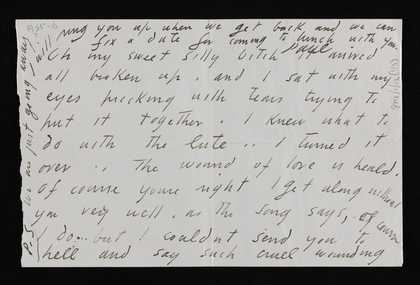 ring you up when we get back and we can
fix a date for coming to lunch with you.
Paul
Oh my sweet silly bitch it arrived
all broken up. and I sat with my
eyes pricking with tears trying to
put it together. I knew what to
do with the lute .. I turned it
over .. the wound of love is heald.
Of course youre right I get along without
you very well. as the song says, of course
I do.. but I couldnt send you to
hell and say such cruel wounding
P.S. We are just going away
will